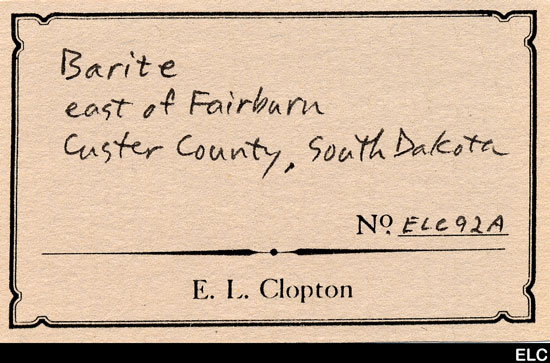 Barite
east of Fairburn
Custer County, South Dakota
No. ELC92A
E. L. Clopton
ELC